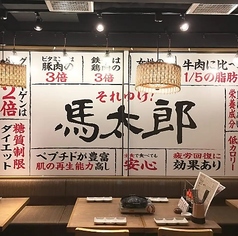 ビタミンは
豚肉の
3倍
鉄分は
鶏肉の
3倍
女性の
牛肉に比べ
1/5の脂肪
2倍
糖質制限
ダイエット
それゆけ!
馬太郎
栄養成分
低カロリー
ペプチドが豊富
肌の再生能力高し
生で食べても
安心
疲労回復に
効果あり